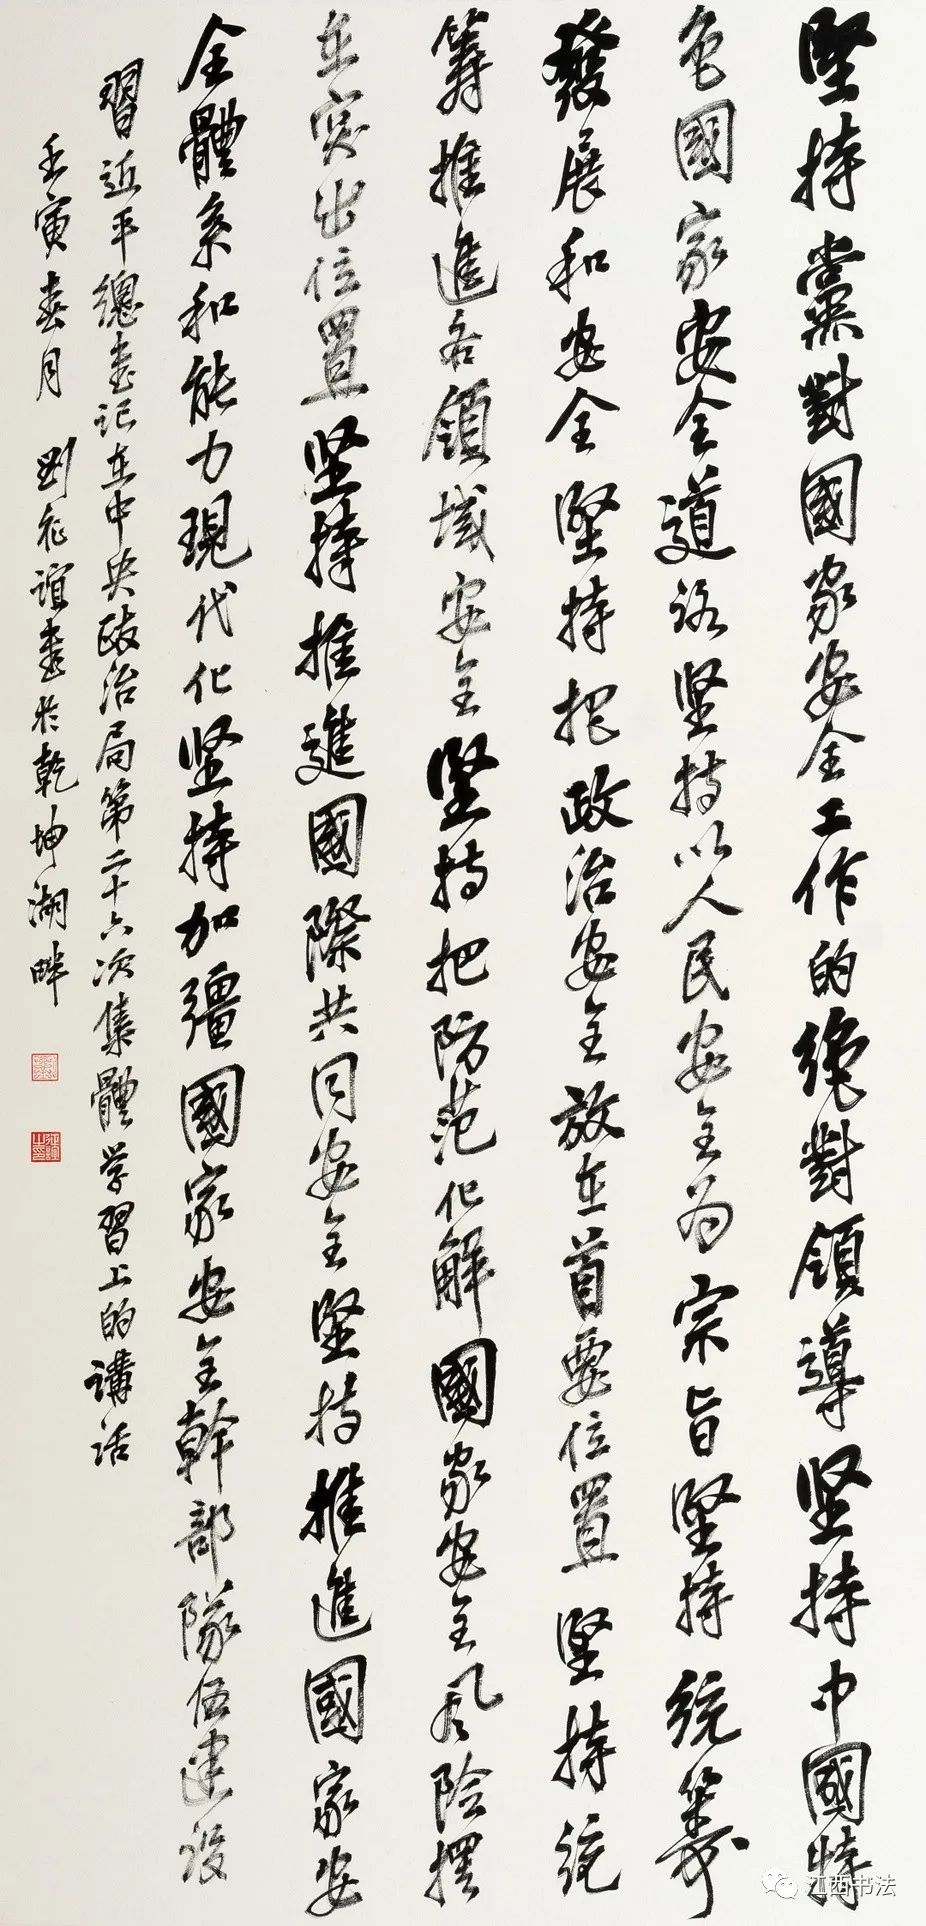 堅持黨對國家安全工作的絶對領導堅持中國特
色國家安全道路堅持以人民安全为宗旨堅持統籌
發展和安全堅持把政治安全放在首要位置堅持統
籌推進各領域安全堅持把防范化解國家安全风险擺
在突出位置堅持推進國際共同安全堅持推進國家安
全體系和能力現代化堅持加彊國家安全幹部隊伍建设
習近平總書记在中央政治局第二十六次集體学習上的講话
壬寅春月 劉征誼書於乾坤湖畔
江西书法